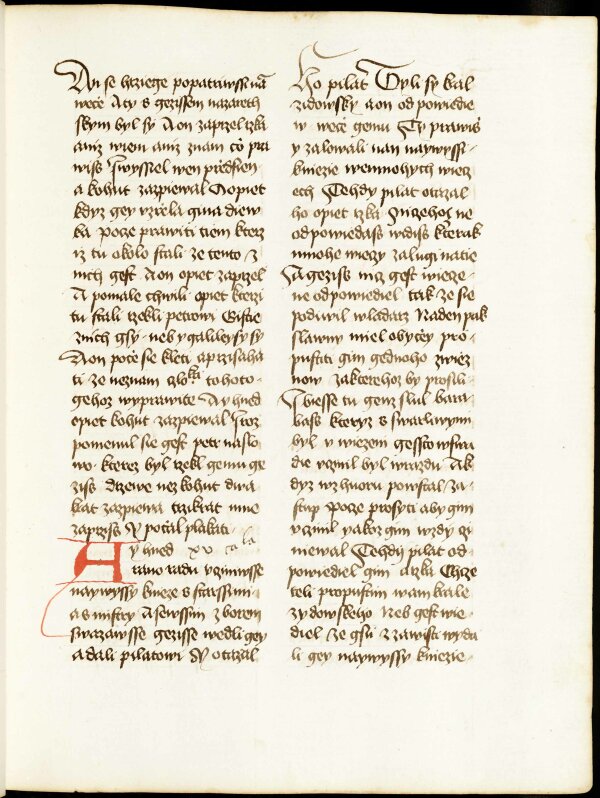 An se hrziege popatrzewssi nań
wece A ty s gezissem nazareth
skym byl sy A on zaprzel rzka
aniz wiem aniz znam čo pra
wiss I wyssiel wen przedsien
a kohut zazpiewal A opiet
kdyz gey vzrzela gina diew
ka pocze prawiti tiem kterz
iz tu okolo stali ze tento z
nich gest A on opiet zaprzel
A pomale chwili opiet kterzi
tu stali rzekli petrowi Gistie
znich gsy neb y galileysky sy
A on poče se kleti a przisaha
ti ze neznam čloka tohoto
gehoz wyprawite A y hned
opiet kohut zazpiewal I roz
pomenul sie gest petr naslo
wo kterez byl rzekl gemu ge
ziss drzewe nez kohut dwa
krat zazpiewa trzikrat mne
zaprziss Y počal plakati
A y hned xv ca la
rano radu vcziniwsse
naywyssy knieze s starssimi
a s mistry A sewssim zborem
swazawsse gezisse wedli gey
a dali pilatowi Y otazal
ho pilat Ty li sy kral
zidowsky a on odpowiedie
w wece gemu Ty prawiš
y zalowali nan naywyssi
kniezie wemnohych wiecz
ech Tehdy pilat otazal
ho opiet rzka Niczehoz ne
odpowiedass wdiss kterak
mnohe wieczy zalugi natie
A geziss nicz gest wiecze
ne odpowiediel tak ze sie
podiwil wladarz Na den pak
slawny miel obyčey pro
pustiti gim gednoho zwiez
now za kterehoz by prosili
I biesse tu gemz slul bara
bass kteryz s swarliwymi
byl v wiezeni genssto wswa
die vczinil byl wrazdu A k
dyz wzhuoru powstal za
stup Pocze prosyti aby gim
vczinil yakoz gim wzdy czi
niewal Tehdy pilat od
powiediel gim a rzka Chcze
teli propustim wam krale
zydowskeho Neb gest wie
diel ze gsu z zawisti wyda
li gey naywyssy kniezie